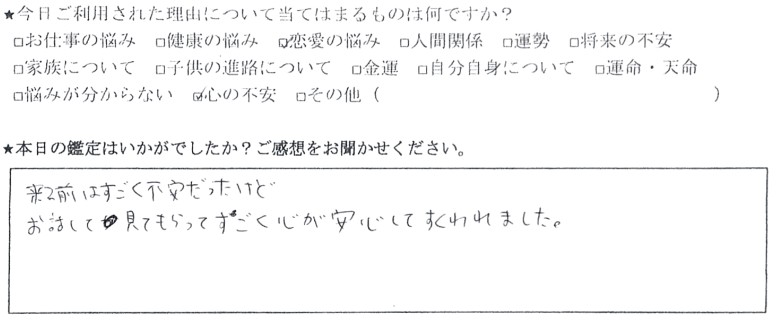 ★今日ご利用された理由について当てはまるものは何ですか？
□お仕事の悩み □健康の悩み ☑恋愛の悩み □人間関係 □運勢 □将来の不安
□家族について □子供の進路について □金運 □自分自身について □運命・天命
□悩みが分からない ☑心の不安 □その他（ ）
★本日の鑑定はいかがでしたか？ご感想をお聞かせください。
来る前はすごく不安だったけど
お話して見てもらってすごく心が安心してすくわれました。